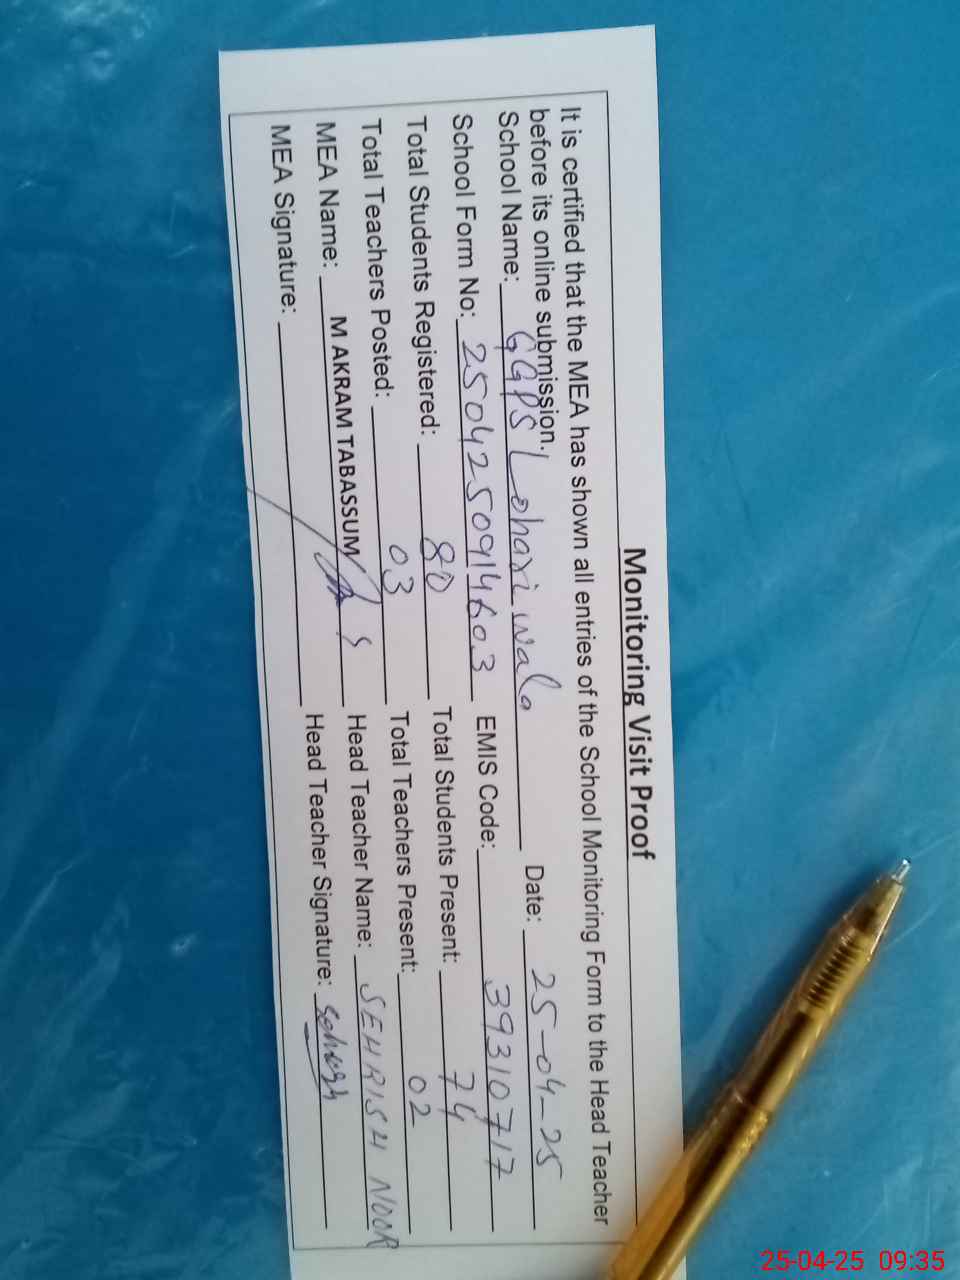 Monitoring Visit Proof
It is certified that the MEA has shown all entries of the School Monitoring Form to the Head Teacher
before its online submission.
School Name: GGPS Lohari wala Date: 25-04-25
School Form No: 2504250914603 EMIS Code: 39310717
Total Students Registered: 80 Total Students Present: 74
Total Teachers Posted: 03 Total Teachers Present: 02
MEA Name: M AKRAM TABASSUM Head Teacher Name: SEHRISH NOOR
MEA Signature: Head Teacher Signature: Sehrish
25-04-25 09:35